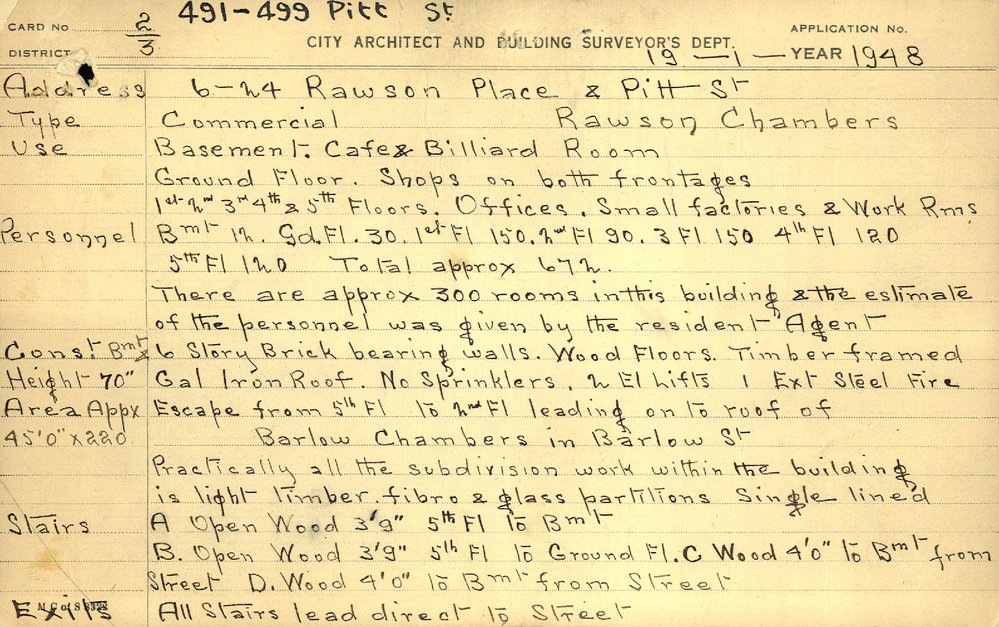 491-499 Pitt St
CARD No 2/3
CITY ARCHITECT AND BUILDING SURVEYOR'S DEPT.
APPLICATION No.
DISTRICT
19-1- YEAR 1948
Address 6-24 Rawson Place & Pitt St
Type Commercial Rawson Chambers
Use Basement. Cafe & Billiard Room
Ground Floor. Shops on both frontages
1st 2nd 3rd 4th & 5th Floors. Offices. Small factories & Work Rms
Personnel Bmt 12. Gd. Fl. 30. 1st Fl 150. 2nd Fl 90. 3 Fl 150 4th Fl 120
5th Fl 120 Total approx 672.
There are approx 300 rooms in this building & the estimate
of the personnel was given by the resident Agent
Const Bmt & 6 Story Brick bearing walls. Wood Floors. Timber framed
Height 70" Gal Iron Roof. No Sprinklers. 2 El Lifts 1 Ext Steel Fire
Area Appx Escape from 5th Fl to 2nd Fl leading on to roof of
45'0" x 220 Barlow Chambers in Barlow St
Practically all the subdivision work within the building
is light timber. fibro & glass partitions Single lined
Stairs A Open Wood 3'9" 5th Fl to Bmt
B. Open Wood 3'9" 5th Fl to Ground Fl. C Wood 4'0" to Bmt from
Street D. Wood 4'0" to Bmt from Street
Exits All Stairs lead direct to Street